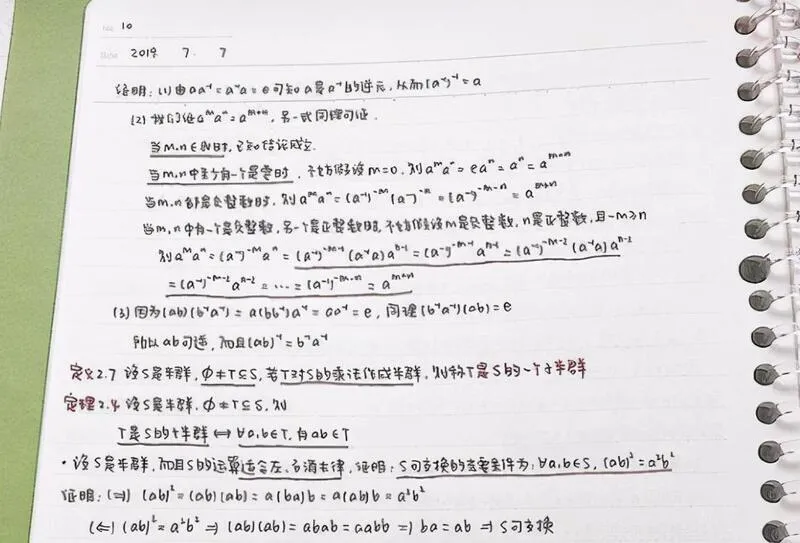 No. 10
Date 2019. 7. 7
证明：(1) 由aa⁻¹=a⁻¹a=e可知a是a⁻¹的逆元，从而(a⁻¹)⁻¹=a
(2) 我们证aᵐaⁿ=aᵐ⁺ⁿ，另一式同理可证．
当m,n∈N时，已知结论成立．
当m,n中至少有一个是零时，不妨假设m=0，则aᵐaⁿ=eaⁿ=aⁿ=aᵐ⁺ⁿ
当m,n都是负整数时，则aᵐaⁿ=(a⁻¹)⁻ᵐ(a⁻¹)⁻ⁿ=(a⁻¹)⁻ᵐ⁻ⁿ=aᵐ⁺ⁿ
当m,n中有一个是负整数，另一个是正整数时，不妨假设m是负整数，n是正整数，且-m≥n
则aᵐaⁿ=(a⁻¹)⁻ᵐaⁿ=(a⁻¹)⁻ᵐ⁻¹(a⁻¹a)aⁿ⁻¹=(a⁻¹)⁻ᵐ⁻¹aⁿ⁻¹=(a⁻¹)⁻ᵐ⁻²(a⁻¹a)aⁿ⁻²
=(a⁻¹)⁻ᵐ⁻²aⁿ⁻²=…=(a⁻¹)⁻ᵐ⁻ⁿ=aᵐ⁺ⁿ
(3) 因为(ab)(b⁻¹a⁻¹)=a(bb⁻¹)a⁻¹=aa⁻¹=e，同理(b⁻¹a⁻¹)(ab)=e
所以ab可逆，而且(ab)⁻¹=b⁻¹a⁻¹
定义2.7 设S是半群，∅≠T⊆S，若T对S的乘法作成半群，则称T是S的一个子半群
定理2.4 设S是半群，∅≠T⊆S，则
T是S的子半群⟺∀a,b∈T，有ab∈T
·设S是半群，而且S的运算适合左、右消去律，证明：S可交换的充要条件为：∀a,b∈S，(ab)²=a²b²
证明：(⇒) (ab)²=(ab)(ab)=a(ba)b=a(ab)b=a²b²
(⇐) (ab)²=a²b² ⇒ (ab)(ab)=abab=aabb ⇒ ba=ab ⇒ S可交换